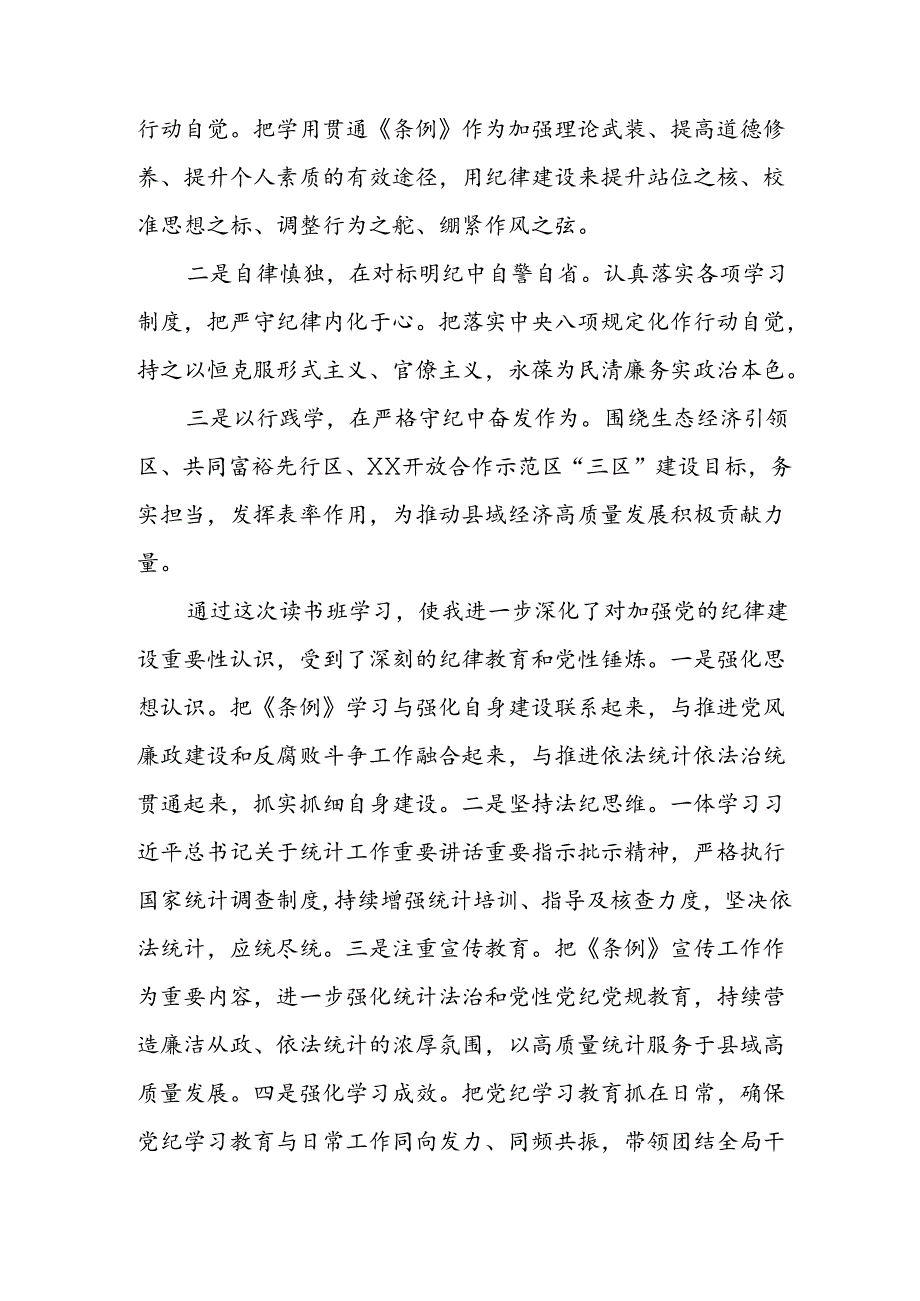 行动自觉。把学用贯通《条例》作为加强理论武装、提高道德修
养、提升个人素质的有效途径，用纪律建设来提升站位之核、校
准思想之标、调整行为之舵、绷紧作风之弦。
二是自律慎独，在对标明纪中自警自省。认真落实各项学习
制度，把严守纪律内化于心。把落实中央八项规定化作行动自觉，
持之以恒克服形式主义、官僚主义，永葆为民清廉务实政治本色。
三是以行践学，在严格守纪中奋发作为。围绕生态经济引领
区、共同富裕先行区、XX开放合作示范区“三区”建设目标，务
实担当，发挥表率作用，为推动县域经济高质量发展积极贡献力
量。
通过这次读书班学习，使我进一步深化了对加强党的纪律建
设重要性认识，受到了深刻的纪律教育和党性锤炼。一是强化思
想认识。把《条例》学习与强化自身建设联系起来，与推进党风
廉政建设和反腐败斗争工作融合起来，与推进依法统计依法治统
贯通起来，抓实抓细自身建设。二是坚持法纪思维。一体学习习
近平总书记关于统计工作重要讲话重要指示批示精神，严格执行
国家统计调查制度,持续增强统计培训、指导及核查力度，坚决依
法统计，应统尽统。三是注重宣传教育。把《条例》宣传工作作
为重要内容，进一步强化统计法治和党性党纪党规教育，持续营
造廉洁从政、依法统计的浓厚氛围，以高质量统计服务于县域高
质量发展。四是强化学习成效。把党纪学习教育抓在日常，确保
党纪学习教育与日常工作同向发力、同频共振，带领团结全局干